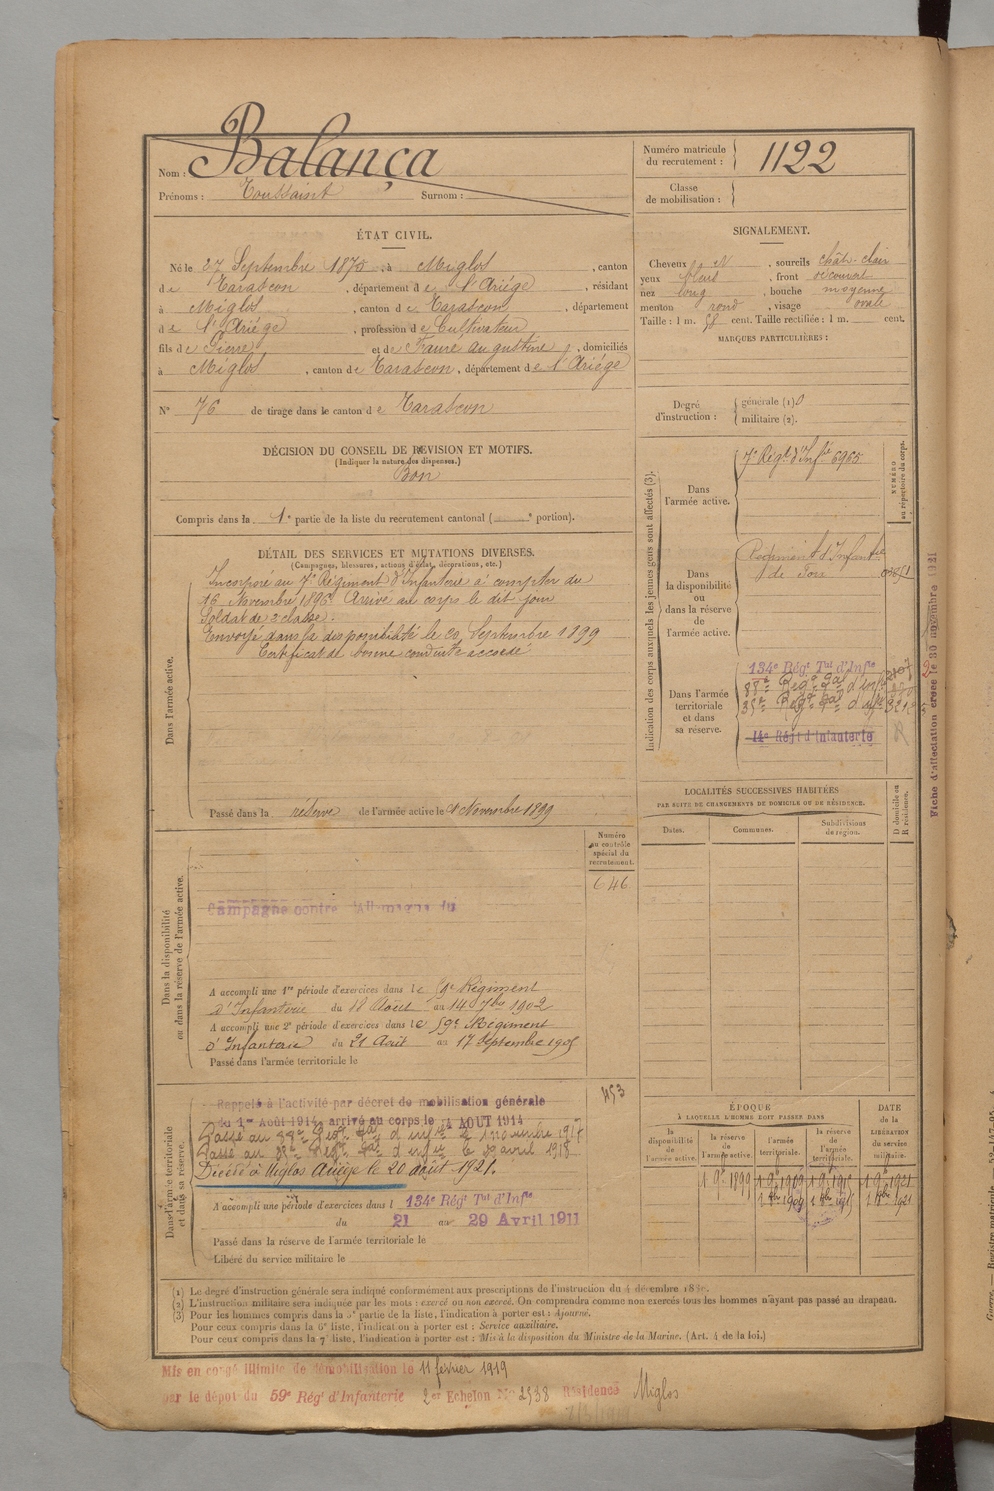 Nom : Balança
Prénoms : Toussaint Surnom :
Numéro matricule du recrutement : 1122
Classe de mobilisation :
ÉTAT CIVIL.
Né le 27 Septembre 1875, à Miglos, canton
de Tarascon, département de l'Ariége, résidant
à Miglos, canton de Tarascon, département
de l'Ariége, profession de Cultivateur
fils de Pierre et de Faure augustine, domiciliés
à Miglos, canton de Tarascon, département de l'Ariége
N° 76 de tirage dans le canton de Tarascon
SIGNALEMENT.
Cheveux et, sourcils chât-clair
yeux bleus, front découvert
nez long, bouche moyenne
menton rond, visage ovale
Taille : 1 m. cent. Taille rectifiée : 1 m. cent.
MARQUES PARTICULIÈRES :
Degré d'instruction : générale (1) 0
militaire (2).
DÉCISION DU CONSEIL DE REVISION ET MOTIFS.
(Indiquer la nature des dispenses.)
Bon
Compris dans la 1e partie de la liste du recrutement cantonal ( e portion).
DÉTAIL DES SERVICES ET MUTATIONS DIVERSES.
(Campagnes, blessures, actions d'éclat, décorations, etc.)
Dans l'armée active.
Incorporé au 7e Régiment d'Infanterie à compter du
16 Novembre 1896. Arrivé au corps le dit jour
Soldat de 2e classe.
Envoyé dans la disponibilité le 20 Septembre 1899
Certificat de bonne conduite accordé
Passé dans la réserve de l'armée active le 1 Novembre 1899
Indication des corps auxquels les jeunes gens sont affectés (3).
NUMÉRO au répertoire du corps.
Dans l'armée active.
7e Régt d'Infie 6965
Dans la disponibilité ou dans la réserve de l'armée active.
Régiment d'Infanterie
de Foix
Dans l'armée territoriale et dans sa réserve.
134e Régt Tal d'Infie
14e Régt d'Infanterie
Fiche d'affectation créée le 30 novembre 1921
LOCALITÉS SUCCESSIVES HABITÉES
PAR SUITE DE CHANGEMENTS DE DOMICILE OU DE RÉSIDENCE.
Dates. Communes. Subdivisions de région. D domicile ou R résidence.
Numéro au contrôle spécial du recrutement.
646
Dans la disponibilité ou dans la réserve de l'armée active.
Campagne contre l'Allemagne du
A accompli une 1re période d'exercices dans le 59e Régiment
d'Infanterie du 18 Août au 14 7bre 1902
A accompli une 2e période d'exercices dans le 59e Régiment
d'Infanterie du 21 Août au 17 Septembre 1905
Passé dans l'armée territoriale le
453
Dans l'armée territoriale et dans sa réserve.
Rappelé à l'activité par décret de mobilisation générale
du 1er Août 1914, arrivé au corps le 4 AOUT 1914
Passé au Regt Tal d'infie le 1 novembre 1917
Passé au Regt Tal d'infie le avril 1918
Décédé à Miglos Ariège le 20 août 1921.
A accompli une période d'exercices dans l 134e Régt Tal d'Infie
du 21 au 29 Avril 1911
Passé dans la réserve de l'armée territoriale le
Libéré du service militaire le
ÉPOQUE
À LAQUELLE L'HOMME DOIT PASSER DANS
DATE de la LIBÉRATION du service militaire.
la disponibilité de l'armée active. la réserve de l'armée active. l'armée territoriale. la réserve de l'armée territoriale.
1 9bre 1899 1 9bre 1909 1 9bre 1915 1 9bre 1921
1 8bre 1909 1 8bre 1915 1 8bre 1921
(1) Le degré d'instruction générale sera indiqué conformément aux prescriptions de l'instruction du 4 décembre 1889.
(2) L'instruction militaire sera indiquée par les mots : exercé ou non exercé. On comprendra comme non exercés tous les hommes n'ayant pas passé au drapeau.
(3) Pour les hommes compris dans la 5e partie de la liste, l'indication à porter est : Ajourné.
Pour ceux compris dans la 6e liste, l'indication à porter est : Service auxiliaire.
Pour ceux compris dans la 7e liste, l'indication à porter est : Mis à la disposition du Ministre de la Marine. (Art. 4 de la loi.)
Mis en congé illimité de démobilisation le 11 février 1919
par le dépôt du 59e Régt d'Infanterie 2er Echelon N° 2538 Résidence Miglos